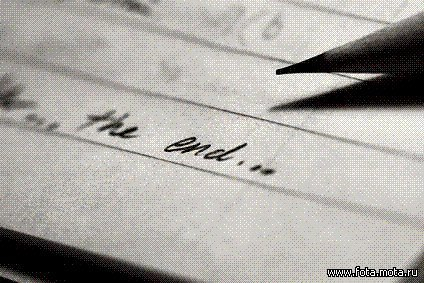 the end...
www.fota.mota.ru